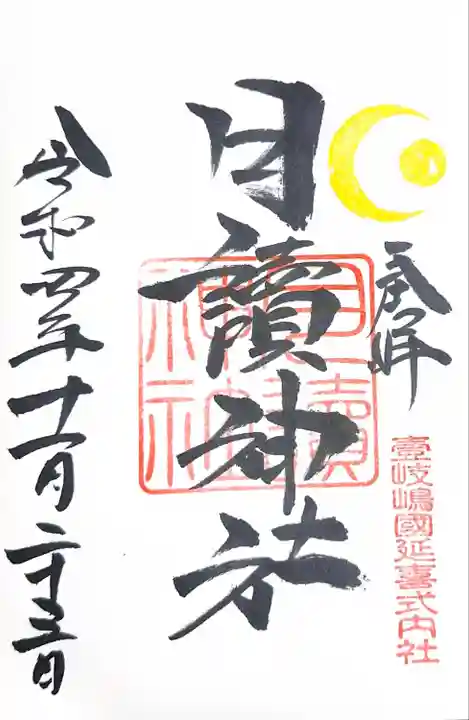 奉拝
壹岐嶋國延喜式内社
月讀神社
月讀
神社
令和四年十一月二十三日